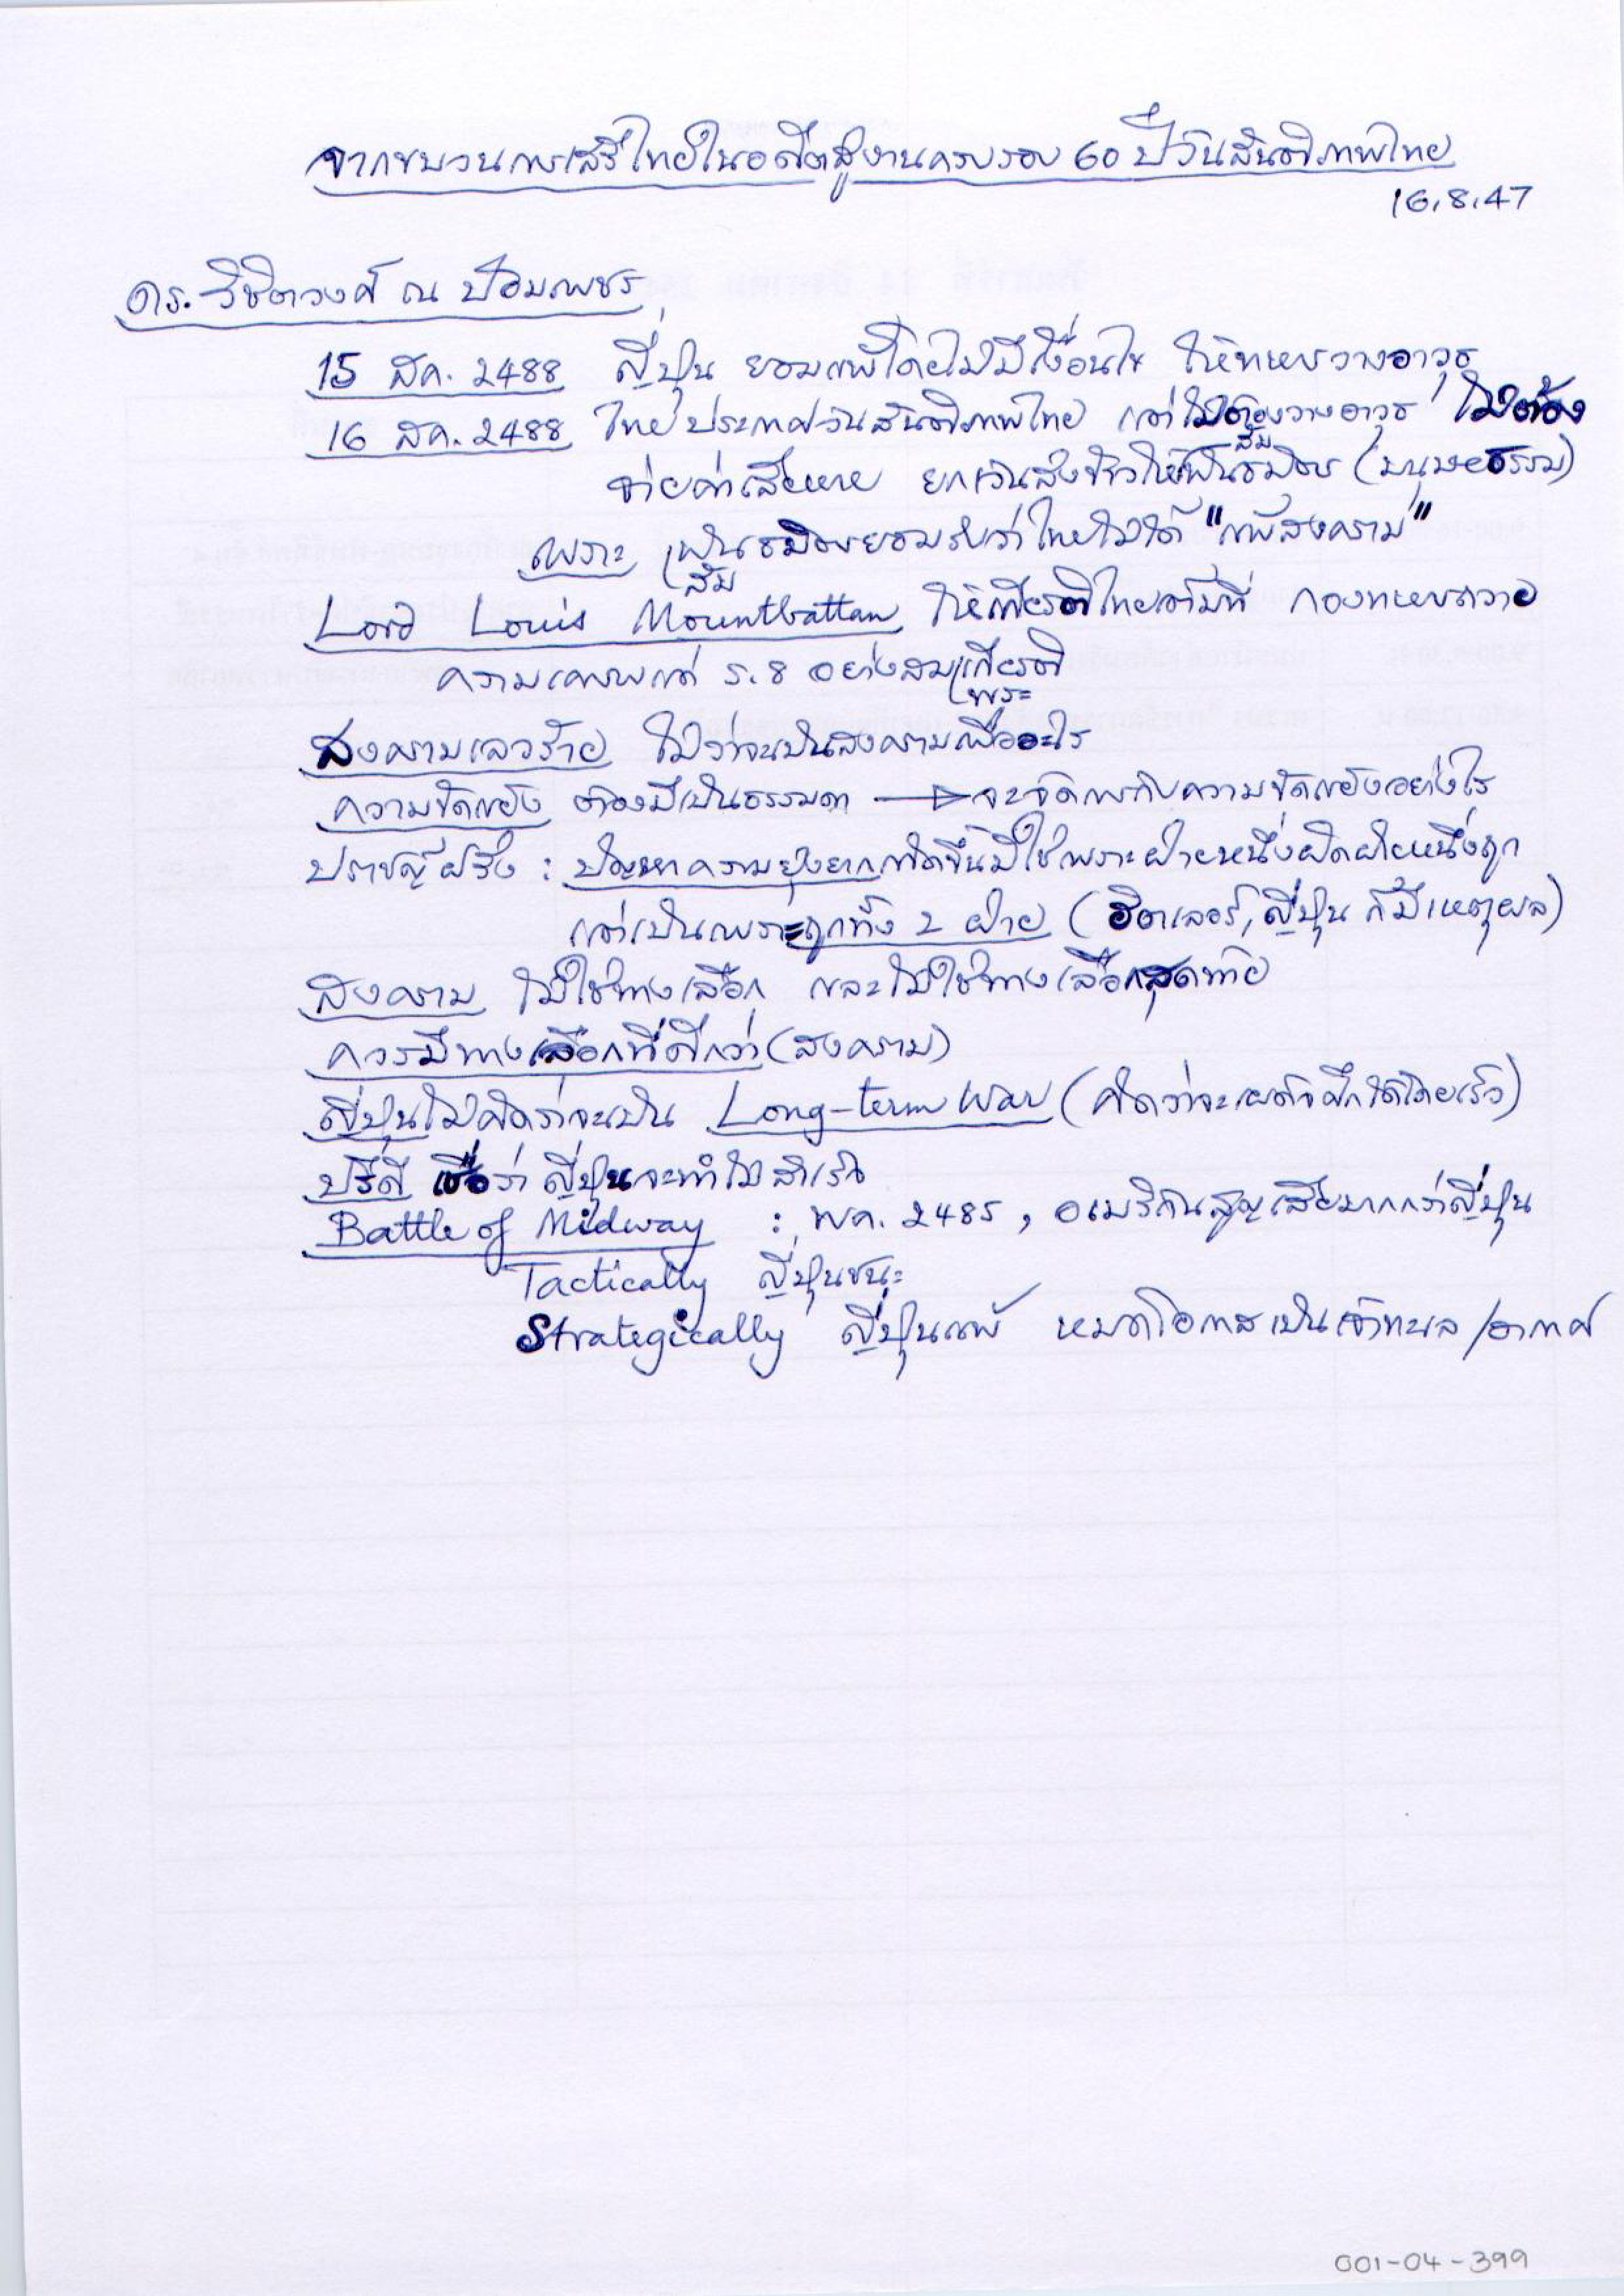 จากขบวนการเสรีไทยในอดีตสู่งานครบรอบ 60 ปี วันสันติภาพไทย
16.8.47
ดร. วิชิตวงศ์ ณ ป้อมเพชร
15 สค. 2488 ญี่ปุ่น ยอมแพ้โดยไม่มีเงื่อนไข ให้ทหารวางอาวุธ
16 สค. 2488 ไทยประกาศวันสันติภาพไทย แต่ไม่ต้องวางอาวุธ ไม่ต้อง
จ่ายค่าเสียหาย ยกเว้นส่งข้าวให้สัมพันธมิตร (มนุษยธรรม)
เพราะ สัมพันธมิตรยอมรับว่าไทยไม่ได้ "แพ้สงคราม"
Lord Louis Mountbattan ให้เกียรติไทยเต็มที่ กองทหารถวาย
ความเคารพแด่ ร.8 อย่างสมพระเกียรติ
สงครามเลวร้าย ไม่ว่าจะเป็นสงครามเพื่ออะไร
ความขัดแย้ง ต้องมีเป็นธรรมดา → จะจัดการกับความขัดแย้งอย่างไร
ปราชญ์ฝรั่ง : ปัญหาความยุ่งยากเกิดขึ้นมิใช่เพราะฝ่ายหนึ่งผิดฝ่ายหนึ่งถูก
แต่เป็นเพราะถูกทั้ง 2 ฝ่าย (ฮิตเลอร์, ญี่ปุ่น ก็มีเหตุผล)
สงคราม ไม่ใช่ทางเลือก และไม่ใช่ทางเลือกสุดท้าย
ควรมีทางเลือกที่ดีกว่า (สงคราม)
ญี่ปุ่นไม่คิดว่าจะเป็น Long-term War (คิดว่าจะเผด็จศึกได้โดยเร็ว)
ปรีดี เชื่อว่า ญี่ปุ่นจะทำไม่สำเร็จ
Battle of Midway : พค. 2485, อเมริกันสูญเสียมากกว่าญี่ปุ่น
Tactically ญี่ปุ่นชนะ
Strategically ญี่ปุ่นแพ้ หมดโอกาสเป็นเจ้าทะเล/อากาศ
001-04-399